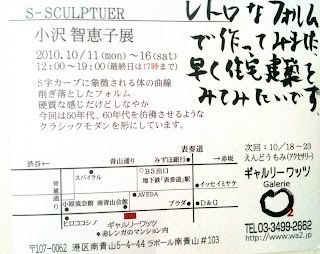 S-SCULPTUER
小沢 智恵子展
2010.10/11(mon)〜16(sat)
12:00〜19:00(最終日は17時まで)
S字カーブに象徴される体の曲線
削ぎ落としたフォルム
硬質な感じだけどしなやか
今回は50年代、60年代を彷彿させるような
クラシックモダンを形にしています。
レトロなフォルム
で作ってみました
早く住宅建築を
みてみたいです。
次回：10/18-23
えんどうもみ(アクセサリー)
ギャルリーワッツ
Galerie
O2
TEL03-3499-2662
http://www.wa2.jp
渋谷←
青山通り
みずほ銀行
表参道
→赤坂
スパイラル
B3出口
地下鉄「表参道」駅
骨董通り
AVEDA
イッセイミヤケ
小原流会館
南青山会館
プラダ
D&G
ヒロココシノ
ギャルリーワッツ
*赤レンガのマンション内
〒107-0062 港区南青山5-4-44 ラポール南青山 #103